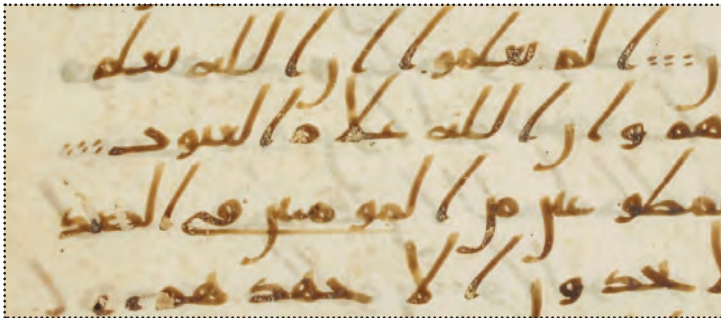 ن الم يعلموا ان الله يعلم
هم وان الله علام الغيوب
لمطوعين من المومنين في الصد
لا يجدون الا جهدهم